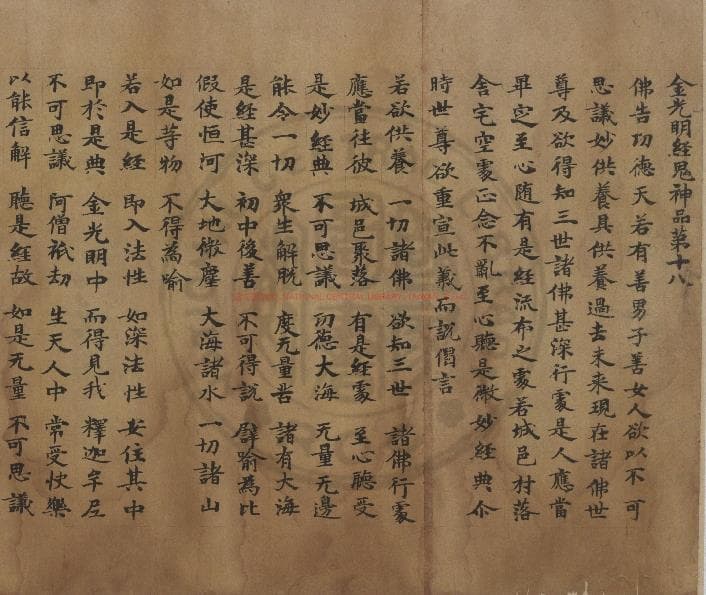 金光明經鬼神品第十八
佛告功德天若有善男子善女人欲以不可
思議妙供養具供養過去未来現在諸佛世
尊及欲得知三世諸佛甚深行處是人應當
畢定至心随有是經流布之處若城邑村落
舍宅空處正念不亂至心聽是微妙經典尒
時世尊欲重宣此義而說偈言
若欲供養 一切諸佛 欲知三世 諸佛行處
應當往彼 城邑聚落 有是經處 至心聽受
是妙經典 不可思議 功德大海 无量无邊
能令一切 衆生解脫 度无量苦 諸有大海
是經甚深 初中後善 不可得說 譬喻為比
假使恒河 大地微塵 大海諸水 一切諸山
如是等物 不得為喻
若入是經 即入法性 如深法性 安住其中
即於是典 金光明中 而得見我 釋迦牟尼
不可思議 阿僧祇劫 生天人中 常受快樂
以能信解 聽是經故 如是无量 不可思議
NATIONAL CENTRAL LIBRARY